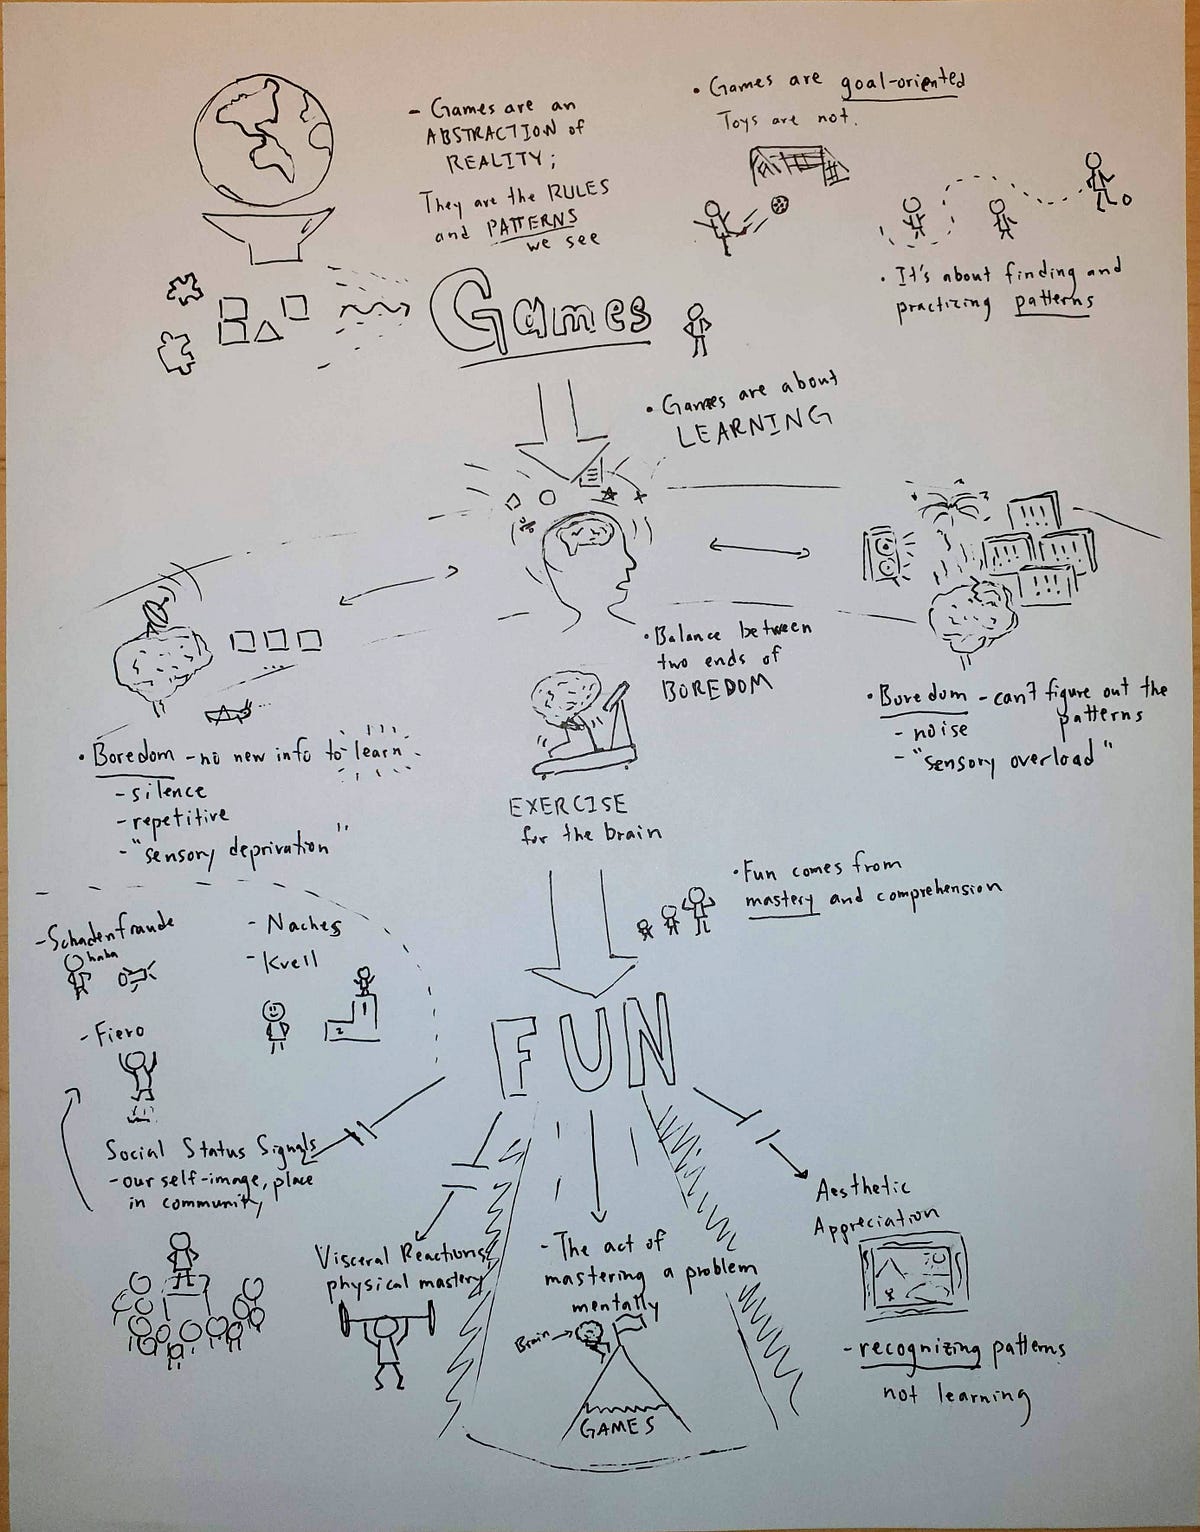 - Games are an
ABSTRACTION of
REALITY;
They are the RULES
and PATTERNS
we see
• Games are goal-oriented
Toys are not.
• It's about finding and
practicing patterns
Games
• Games are about
LEARNING
!!!
!!!
!!!
!!!
• Balance between
two ends of
BOREDOM
• Boredom - no new info to learn
- silence
- repetitive
- "sensory deprivation"
...
• Boredom - can't figure out the
patterns
- noise
- "sensory overload"
EXERCISE
for the brain
• Fun comes from
mastery and comprehension
- Schadenfraude
haha
- Naches
- Kvell
1
2
- Fiero
FUN
Social Status Signals
- our self-image, place
in community
Visceral Reactions,
physical mastery
- The act of
mastering a problem
mentally
Brain
GAMES
Aesthetic
Appreciation
- recognizing patterns
not learning